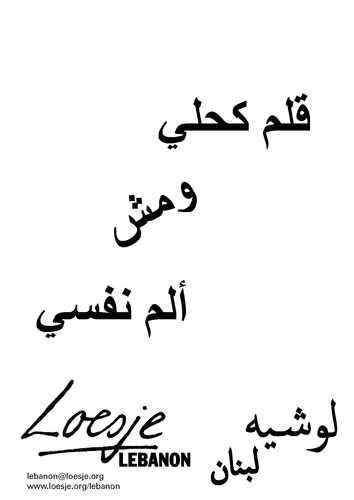 قلم كحلي
ومش
ألم نفسي
Loesje
LEBANON
لوشيه
لبنان
lebanon@loesje.org
www.loesje.org/lebanon